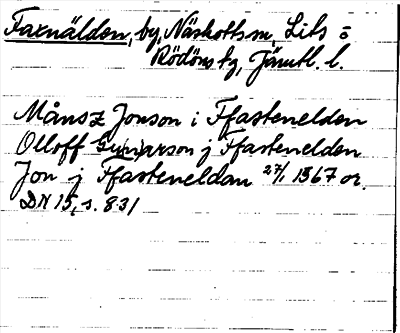 Faxnälden, by, Näskotts sn, Lits o
Rödöns tg, Jämtl. l.
Månsz Jonson i Ffastenelden
Olloff Gunnarson j Ffastenelden
Jon j Ffasteneldom 27/1 1567 or.
DN 15, s. 831